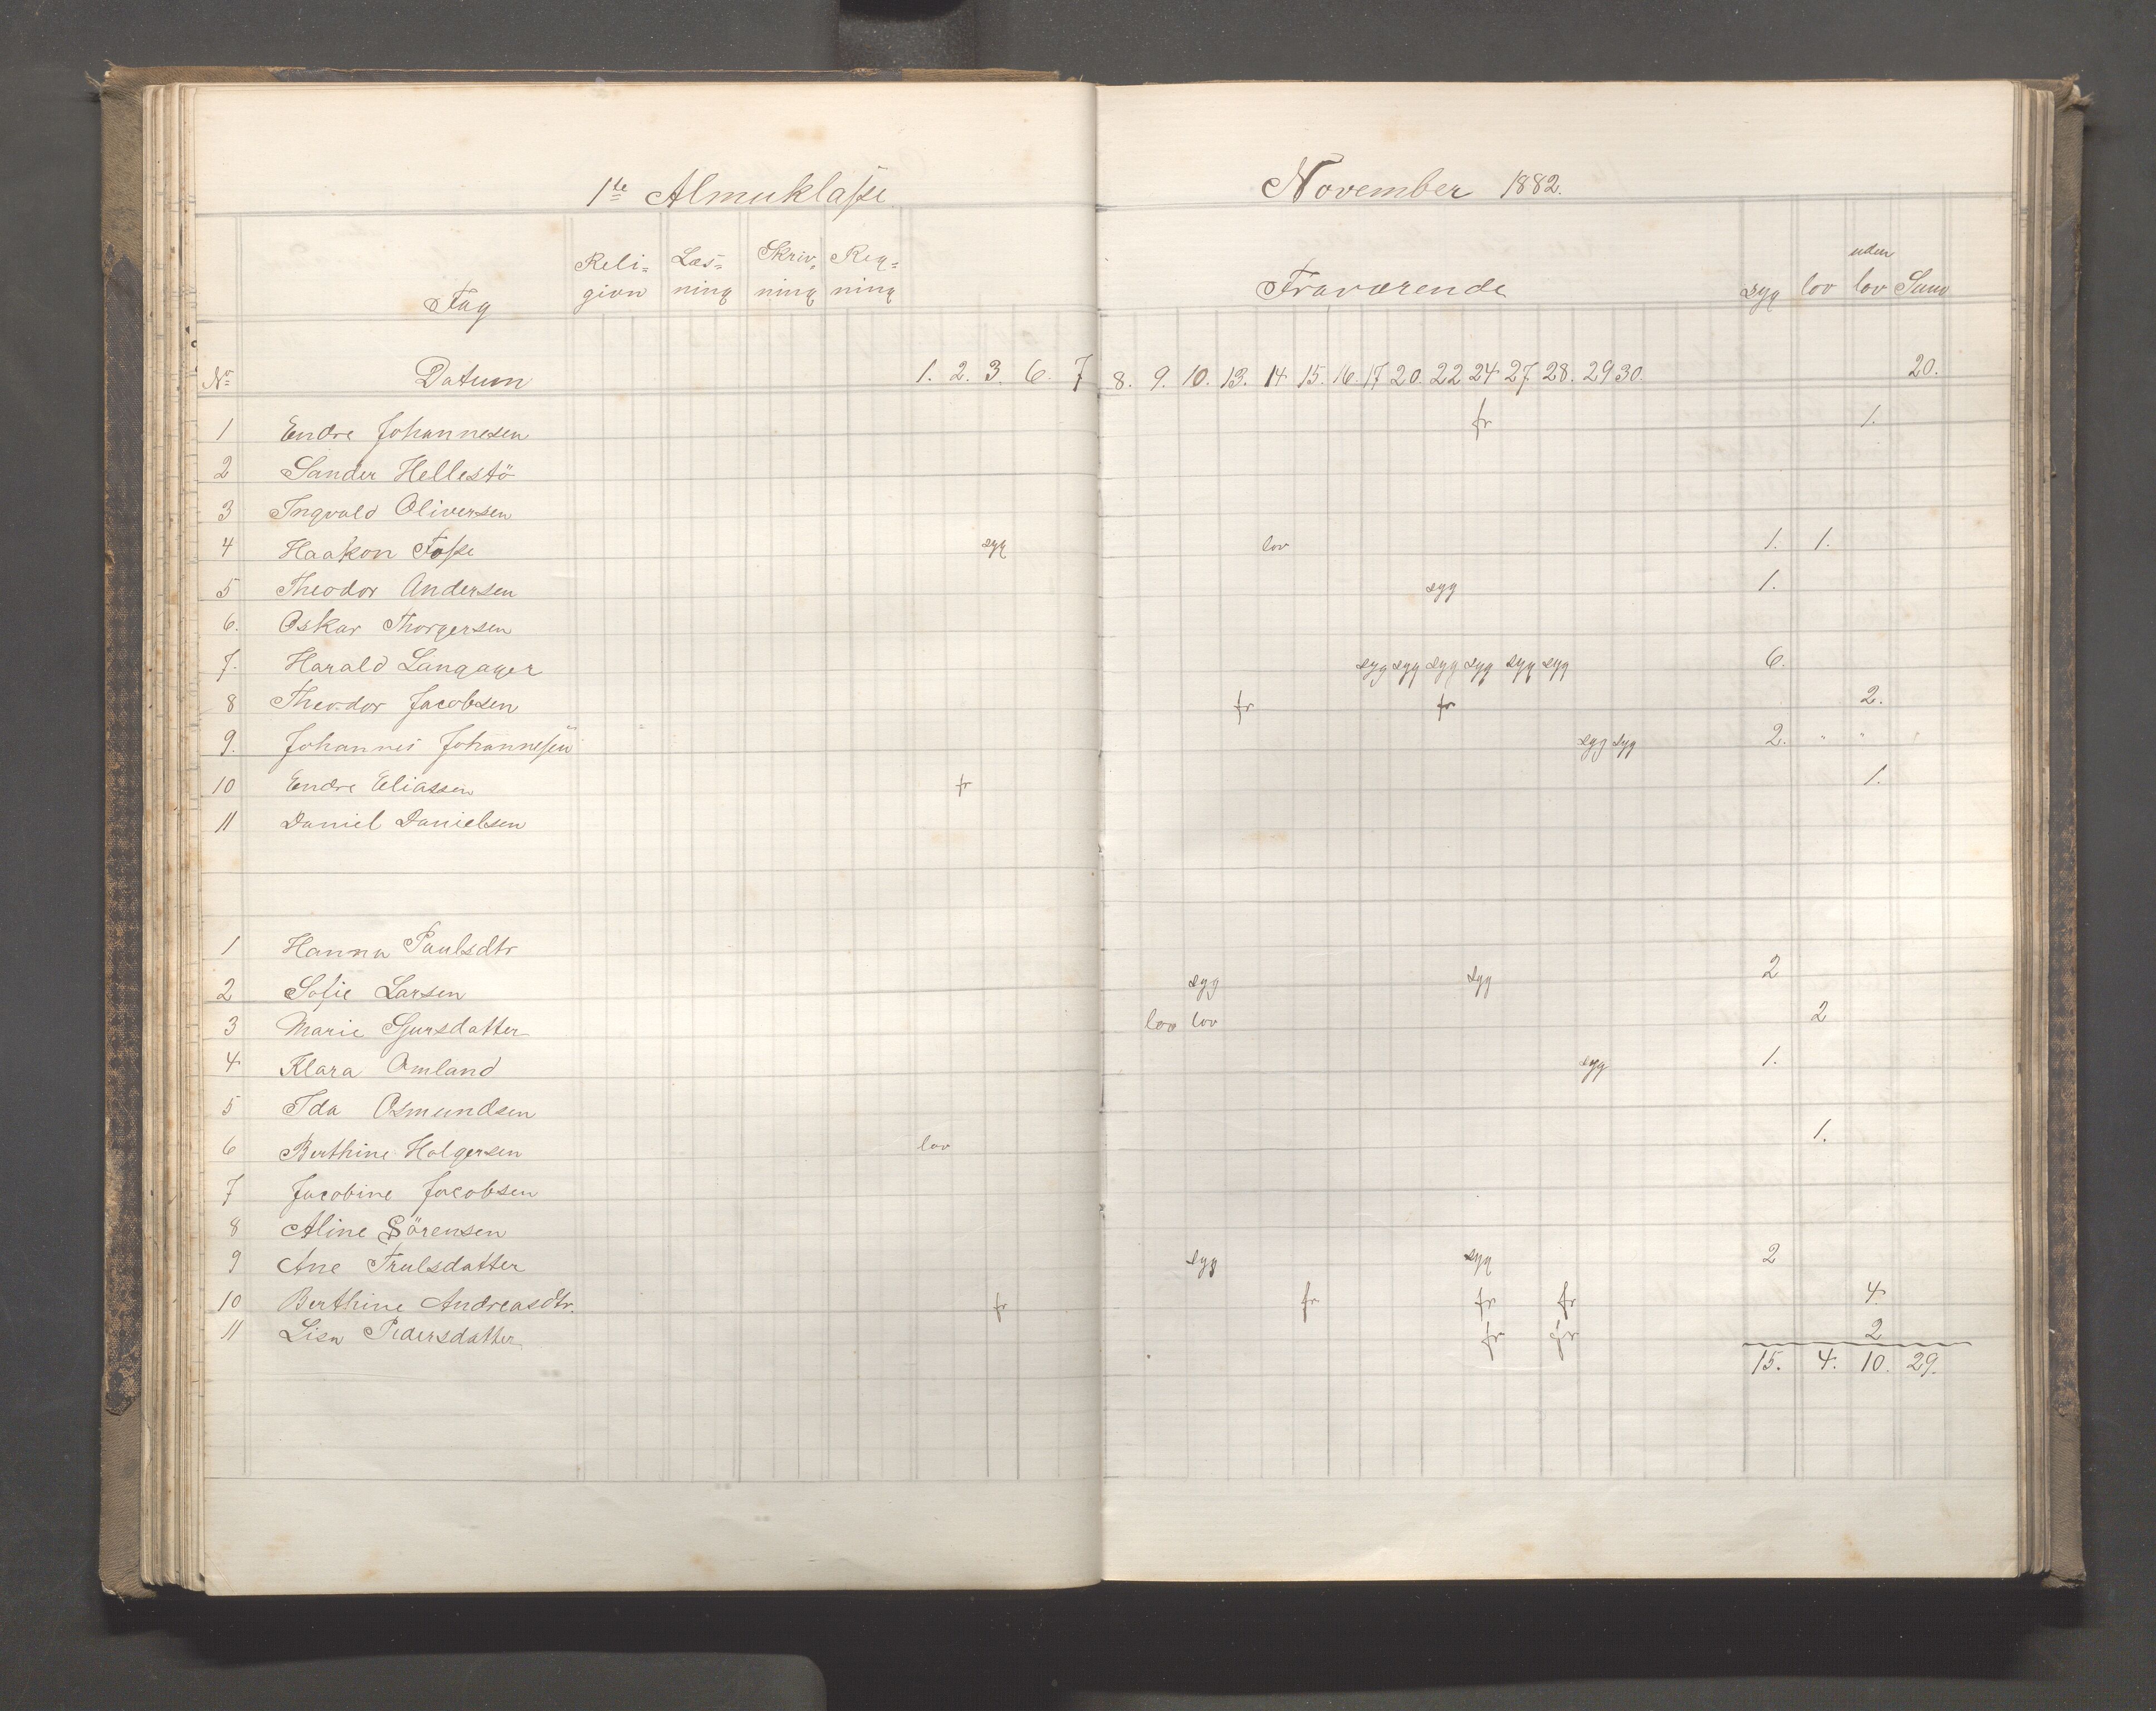 1te Almuklasse
November 1882.
Fag Religion Læsning Skrivning Regning Fraværende syg lov uden lov Sum
No Datum 1. 2. 3. 6. 7 8. 9. 10. 13. 14 15. 16. 17 20. 22 24 27. 28. 29 30. 20.
1 Endre Johannesen fr 1.
2 Sander Hellestö
3 Ingvald Oliversen
4 Haakon Fosse syg lov 1. 1.
5 Theodor Andersen syg 1.
6. Oskar Thorgersen
7. Harald Langager syg syg syg syg syg syg 6.
8 Theodor Jacobsen fr fr 2.
9. Johannes Johannesen syg syg 2. " "
10 Endre Eliassen fr 1.
11 Daniel Danielsen
1 Hanna Paulsdtr
2 Sofie Larsen syg syg 2
3 Marie Sjursdatter lov lov 2
4 Klara Omland syg 1.
5 Ida Osmundsen
6 Berthine Holgersen lov 1.
7 Jacobine Jacobsen
8 Aline Sörensen
9 Ane Trulsdatter syg syg 2
10 Berthine Andreasdtr. fr fr fr fr 4
11 Lisa Pedersdatter fr fr 2
15. 4. 10. 29.